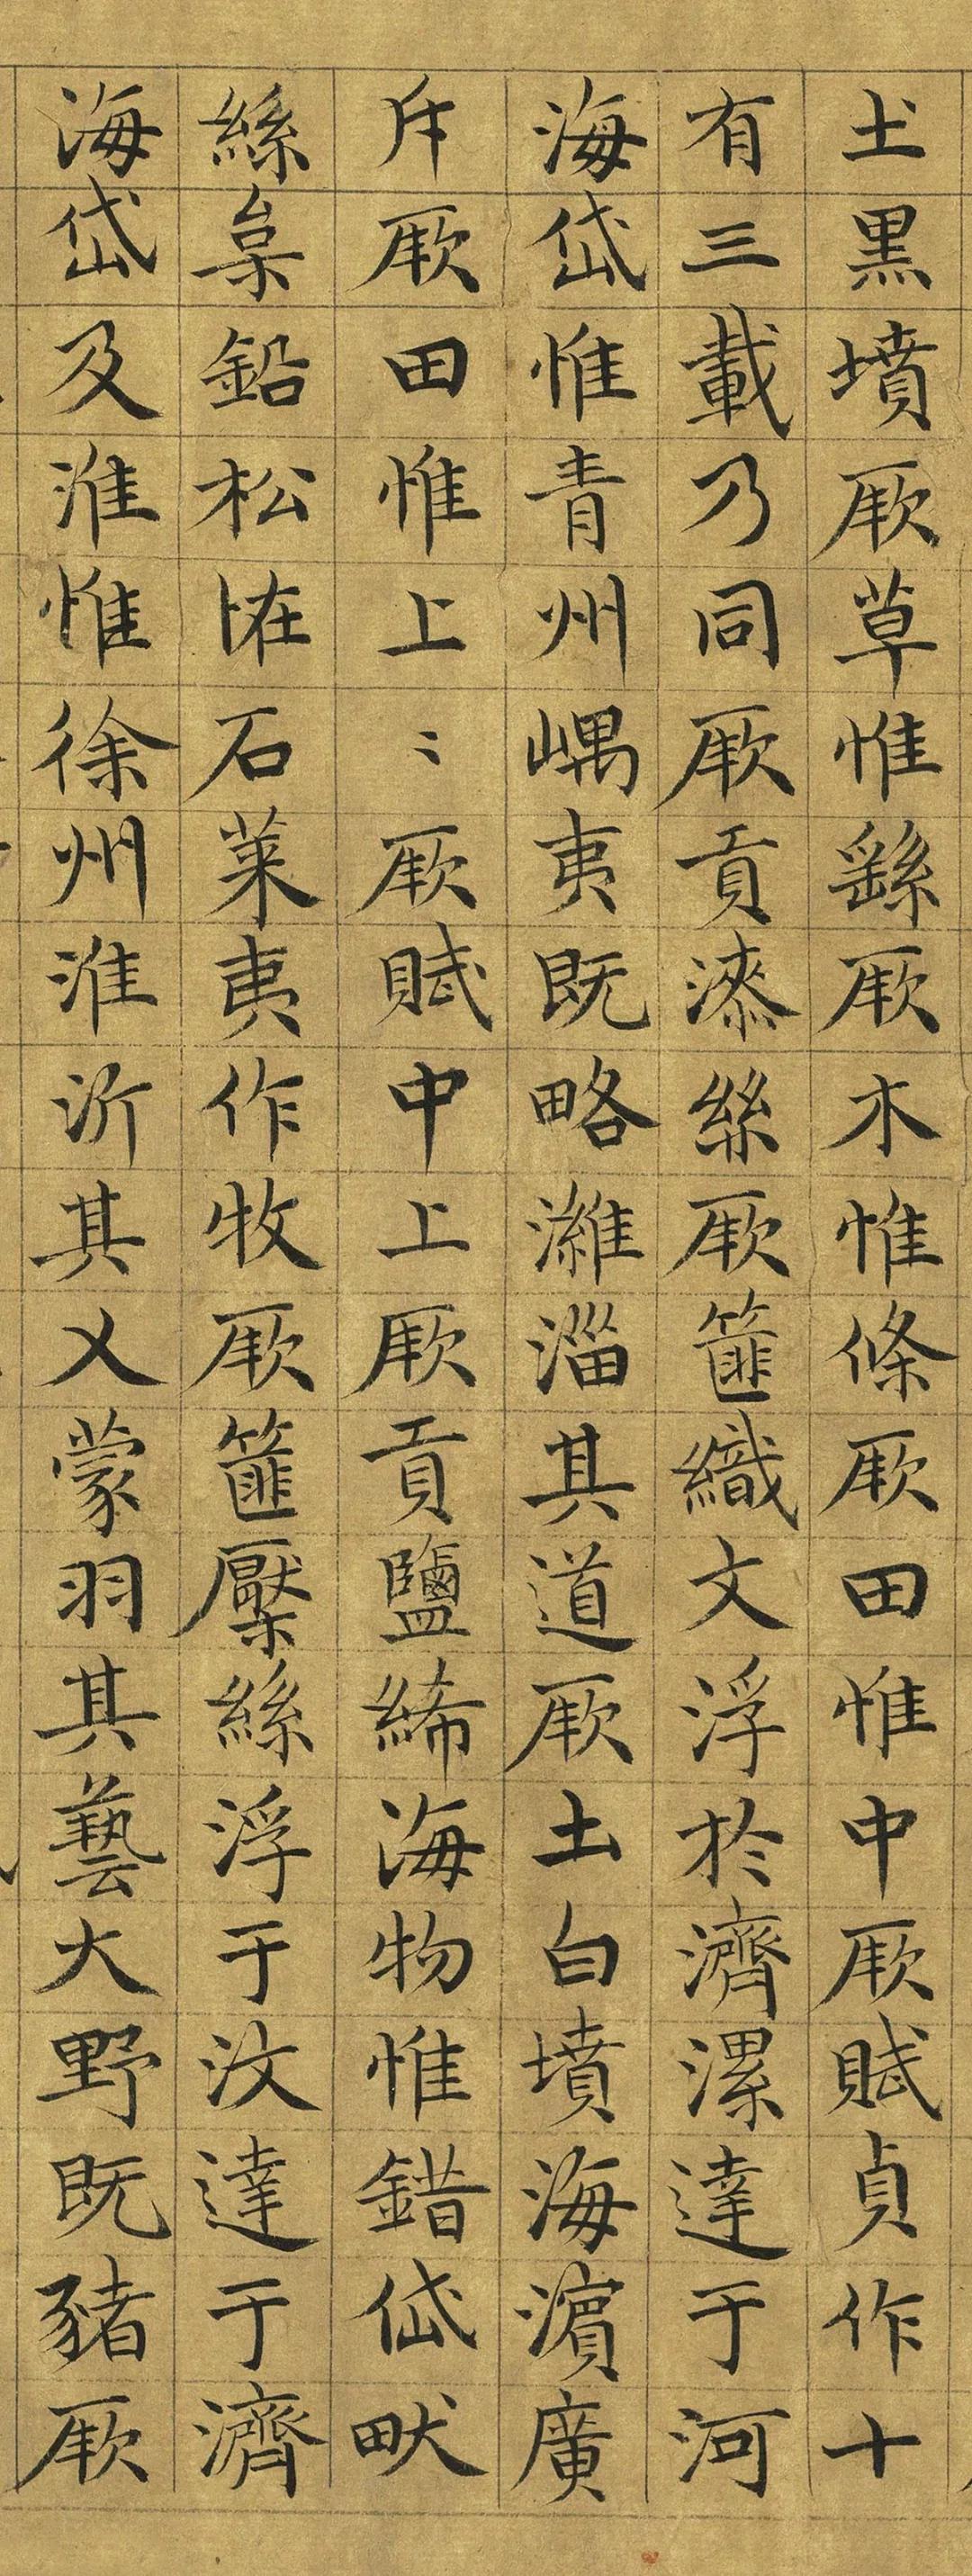 土黑墳厥草惟繇厥木惟條厥田惟中厥賦貞作十
有三載乃同厥貢漆絲厥篚織文浮於濟漯達于河
海岱惟青州嵎夷既略濰淄其道厥土白墳海濵廣
斥厥田惟上〻厥賦中上厥貢鹽絺海物惟錯岱畎
絲枲鉛松恠石萊夷作牧厥篚檿絲浮于汶達于濟
海岱及淮惟徐州淮沂其乂蒙羽其藝大野既豬厥